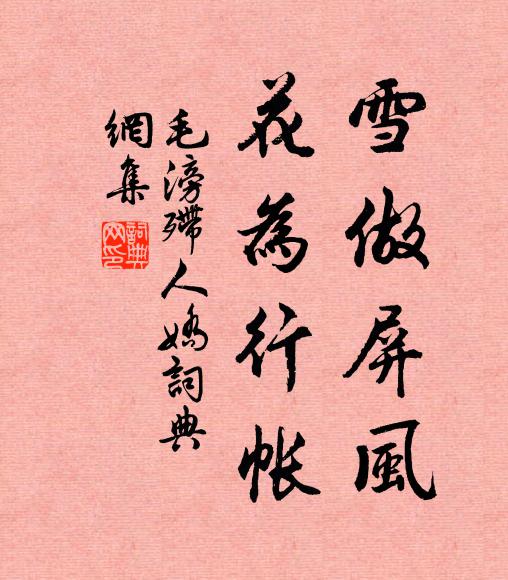 雪做屏風
花為行帳
毛滂殢人嬌詞典
網集
詞典
网印